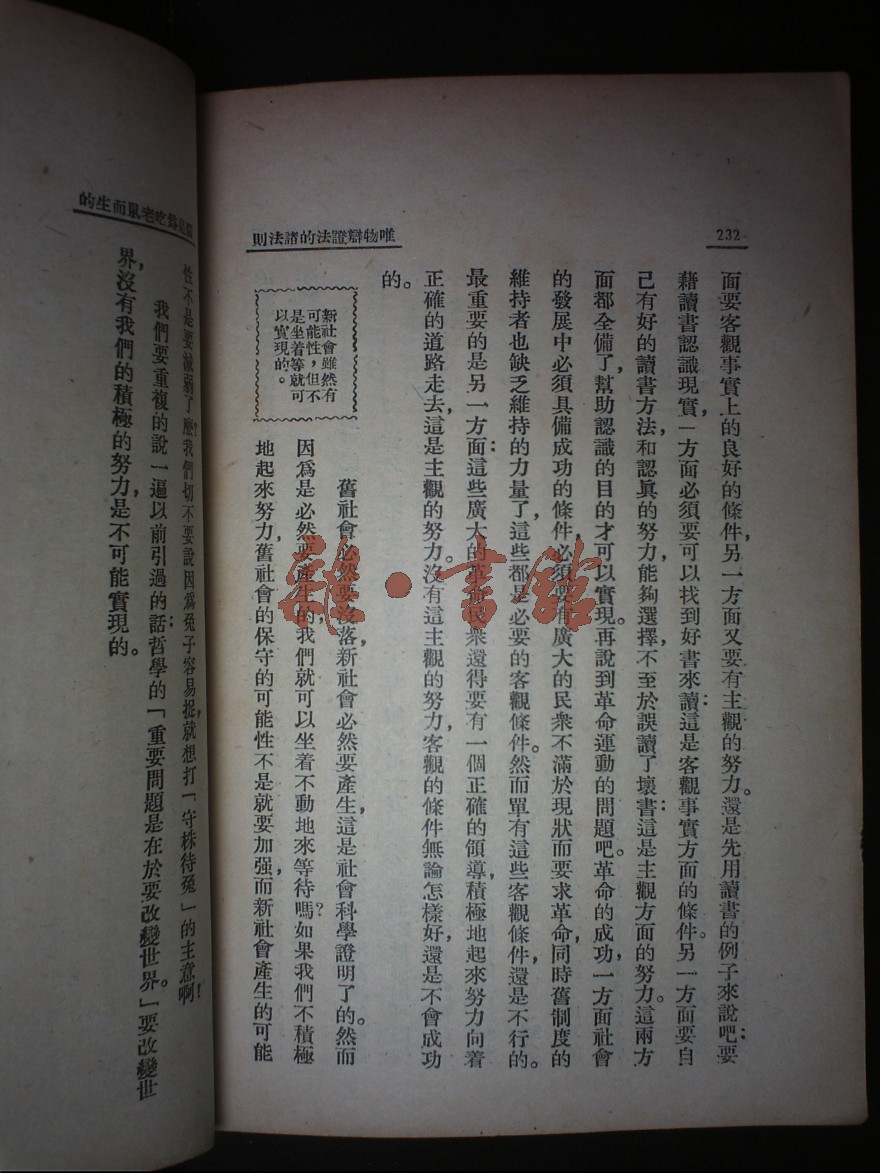 232
唯物辯證法的諸法則
面要客觀事實上的良好的條件，另一方面又要有主觀的努力。還是先用讀書的例子來說吧：要
藉讀書認識現實，一方面必須要可以找到好書來讀：這是客觀事實方面的條件。另一方面要自
己有好的讀書方法，和認眞的努力，能夠選擇，不至於誤讀了壞書：這是主觀方面的努力。這兩方
面都全備了，幫助認識的目的才可以實現。再說到革命運動的問題吧。革命的成功，一方面社會
的發展中必須具備成功的條件，必須要有廣大的民衆不滿於現狀而要求革命，同時舊制度的
維持者也缺乏維持的力量了，這些都是必要的客觀條件。然而單有這些客觀條件，還是不行的。
最重要的是另一方面：這些廣大的革命民衆還得要有一個正確的領導，積極地起來努力向着
正確的道路走去，這是主觀的努力。沒有這主觀的努力，客觀的條件無論怎樣好，還是不會成功
的。
新社會雖然有
可能性，但不
是坐着等就可
以實現的。
舊社會必然要沒落，新社會必然要產生，這是社會科學證明了的。然而
因爲是必然要產生的，我們就可以坐着不動地來等待嗎？如果我們不積極
地起來努力，舊社會的保守的可能性不是就要加强，而新社會產生的可能
貓是爲吃老鼠而生的
性不是要減弱了麼？我們切不要說因爲兔子容易捉，就想打「守株待兔」的主意啊！
我們要重複的說一遍以前引過的話：哲學的「重要問題是在於要改變世界。」要改變世
界，沒有我們的積極的努力，是不可能實現的。
雜·書館